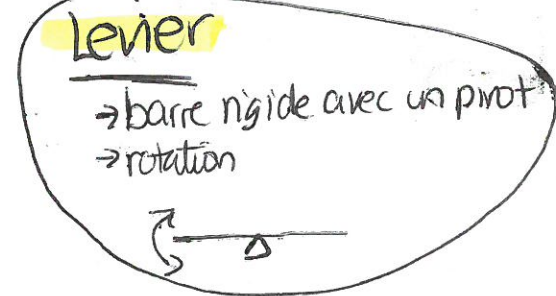 Levier
→ barre rigide avec un pivot
→ rotation